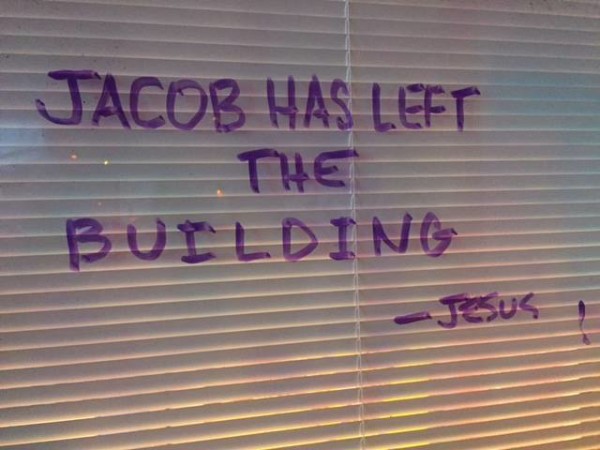 JACOB HAS LEFT
THE
BUILDING
— JESUS !